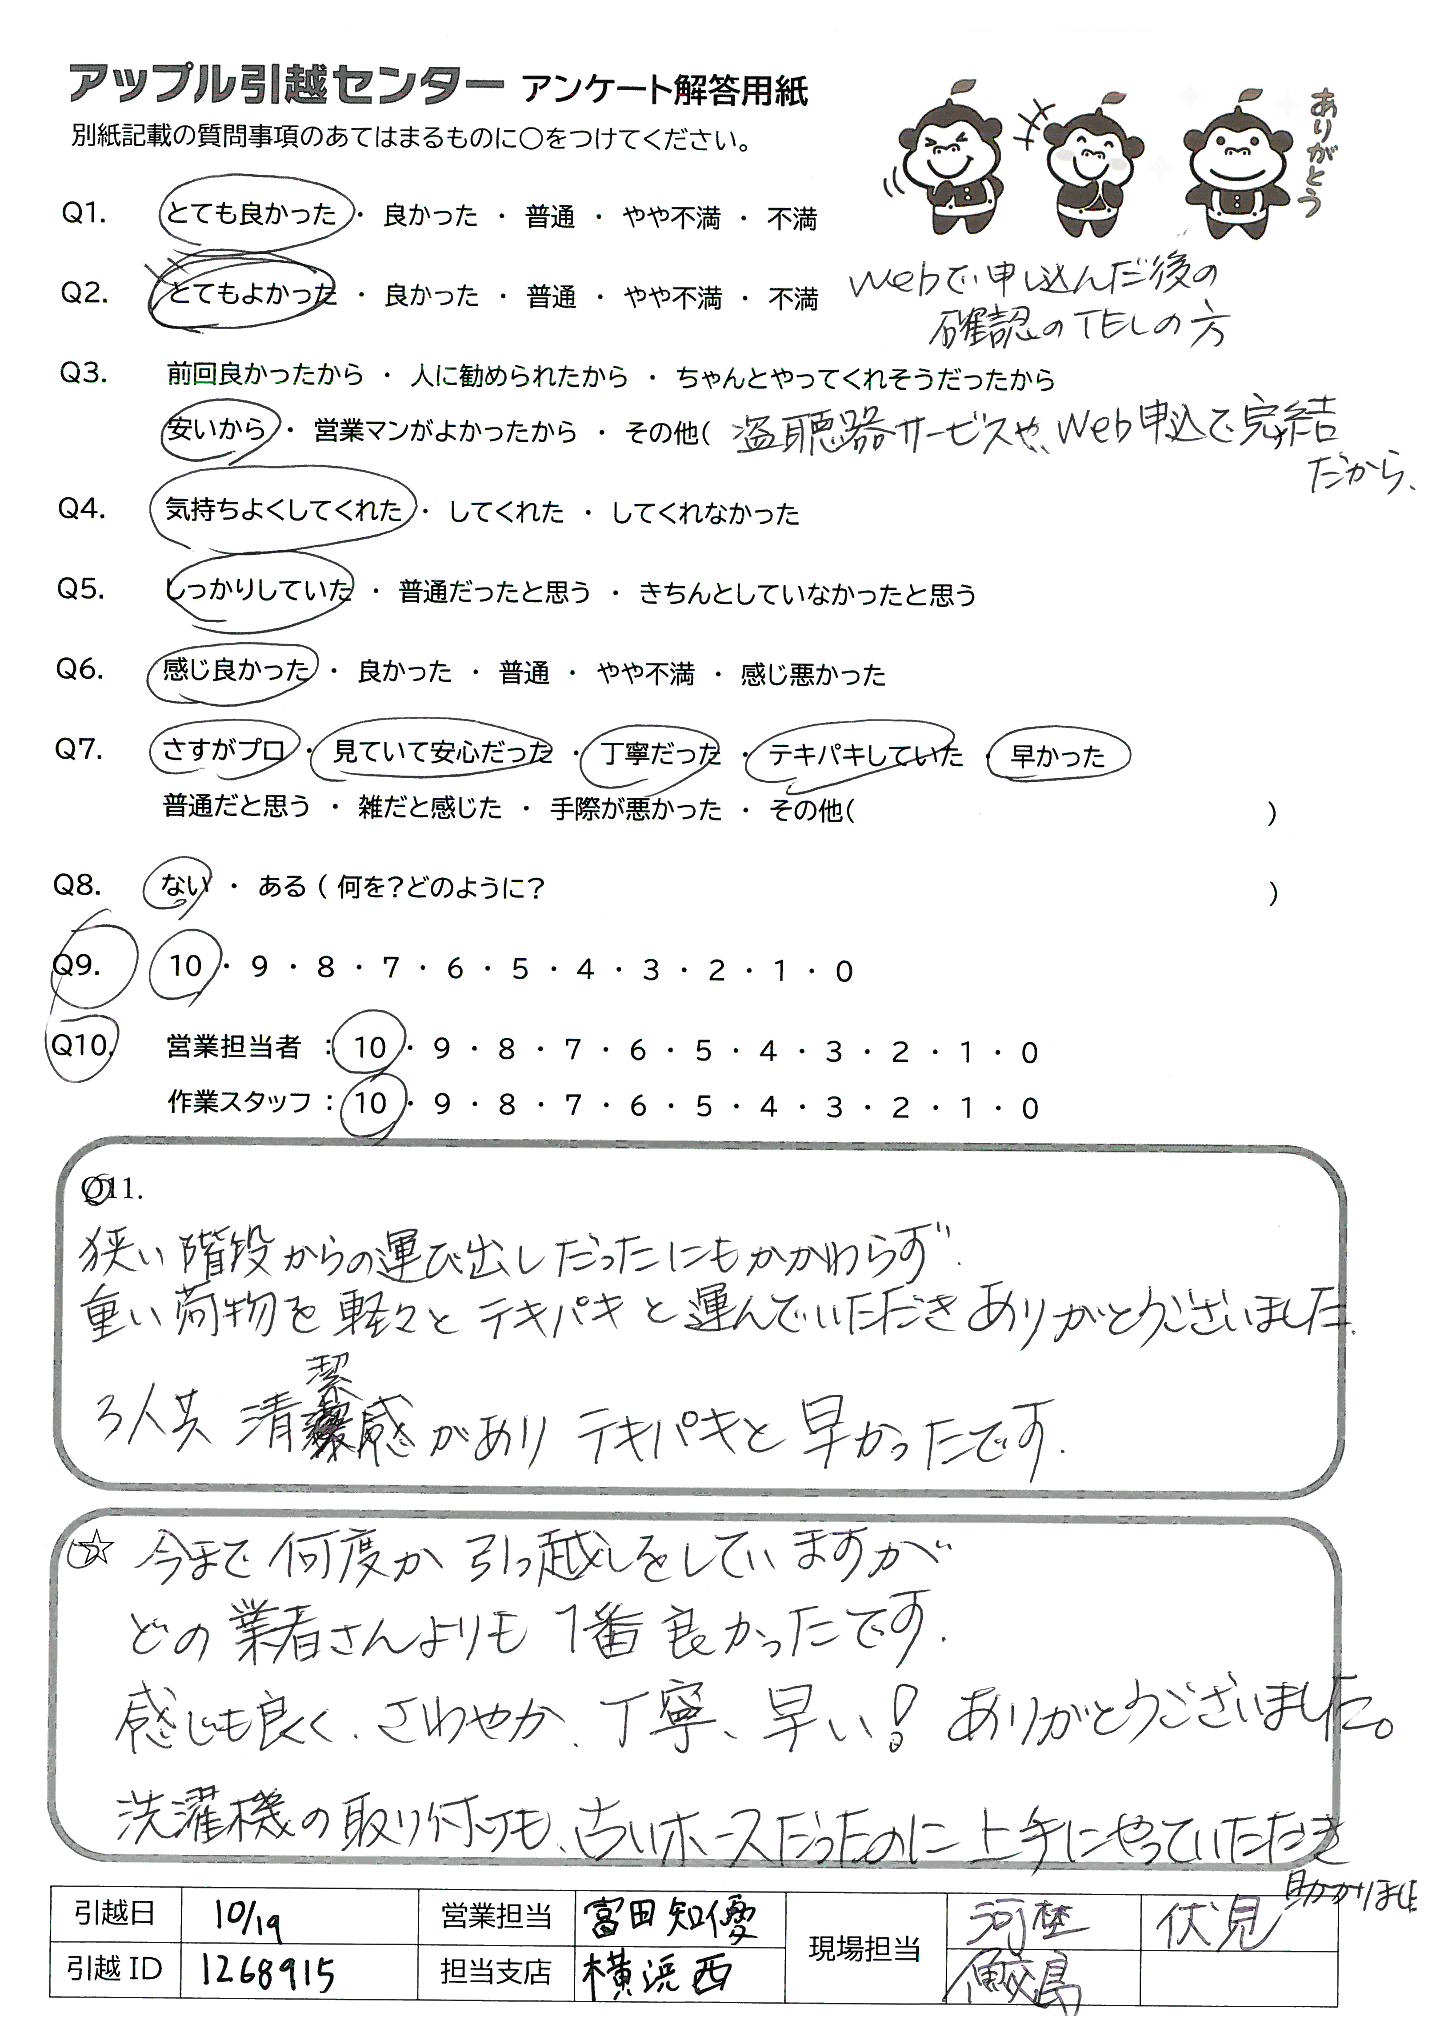 アップル引越センター アンケート解答用紙
別紙記載の質問事項のあてはまるものに○をつけてください。
ありがとう
Q1. とても良かった ・ 良かった ・ 普通 ・ やや不満 ・ 不満
Q2. とてもよかった ・ 良かった ・ 普通 ・ やや不満 ・ 不満
Webで申し込んだ後の
確認のTELの方
Q3. 前回良かったから ・ 人に勧められたから ・ ちゃんとやってくれそうだったから
安いから ・ 営業マンがよかったから ・ その他( 盗聴器サービスや、Web申込で完結
だから、
Q4. 気持ちよくしてくれた ・ してくれた ・ してくれなかった
Q5. しっかりしていた ・ 普通だったと思う ・ きちんとしていなかったと思う
Q6. 感じ良かった ・ 良かった ・ 普通 ・ やや不満 ・ 感じ悪かった
Q7. さすがプロ ・ 見ていて安心だった ・ 丁寧だった ・ テキパキしていた ・ 早かった
普通だと思う ・ 雑だと感じた ・ 手際が悪かった ・ その他( )
Q8. ない ・ ある ( 何を?どのように? )
Q9. 10 ・ 9 ・ 8 ・ 7 ・ 6 ・ 5 ・ 4 ・ 3 ・ 2 ・ 1 ・ 0
Q10. 営業担当者 : 10 ・ 9 ・ 8 ・ 7 ・ 6 ・ 5 ・ 4 ・ 3 ・ 2 ・ 1 ・ 0
作業スタッフ : 10 ・ 9 ・ 8 ・ 7 ・ 6 ・ 5 ・ 4 ・ 3 ・ 2 ・ 1 ・ 0
Q11.
狭い階段からの運び出しだったにもかかわらず
重い荷物を軽々とテキパキと運んでいただきありがとうございました.
3人共 清潔感があり テキパキと早かったです.
☆ 今まで何度か引っ越しをしていますが
どの業者さんよりも 1番良かったです.
感じも良く、さわやか、丁寧、早い! ありがとうございました。
洗濯機の取り付けも、古いホースだったのに上手にやっていただき
助かりました
引越日 10/19 営業担当 富田知優 現場担当 河埜 伏見
引越ID 1268915 担当支店 横浜西 鮫島